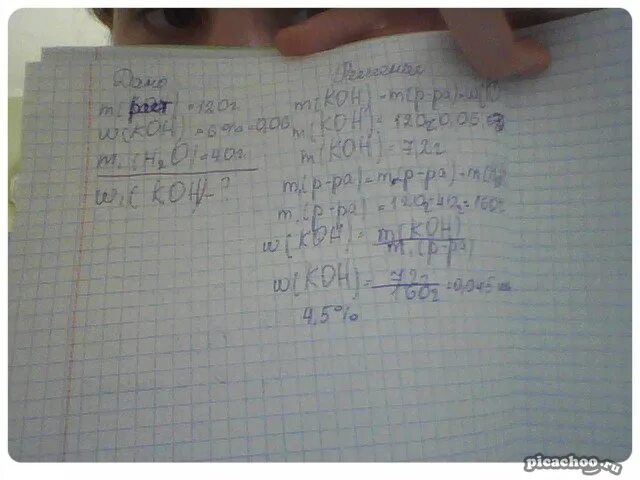 Дано
m(р-р) = 120г
w(KOH) = 6% = 0,06
m₁(H₂O) = 40г
w₁(KOH) - ?
Решение
m(KOH) = m(р-ра)
m(KOH) = 120г · 0,06
m(KOH) = 7,2г
m₁(р-ра) = m(р-ра)
m₁(р-ра) = 120г + 40г = 160г
w(KOH) = m(KOH) / m₁(р-ра)
w(KOH) = 7,2г / 160г = 0,045
4,5%
picachoo.ru